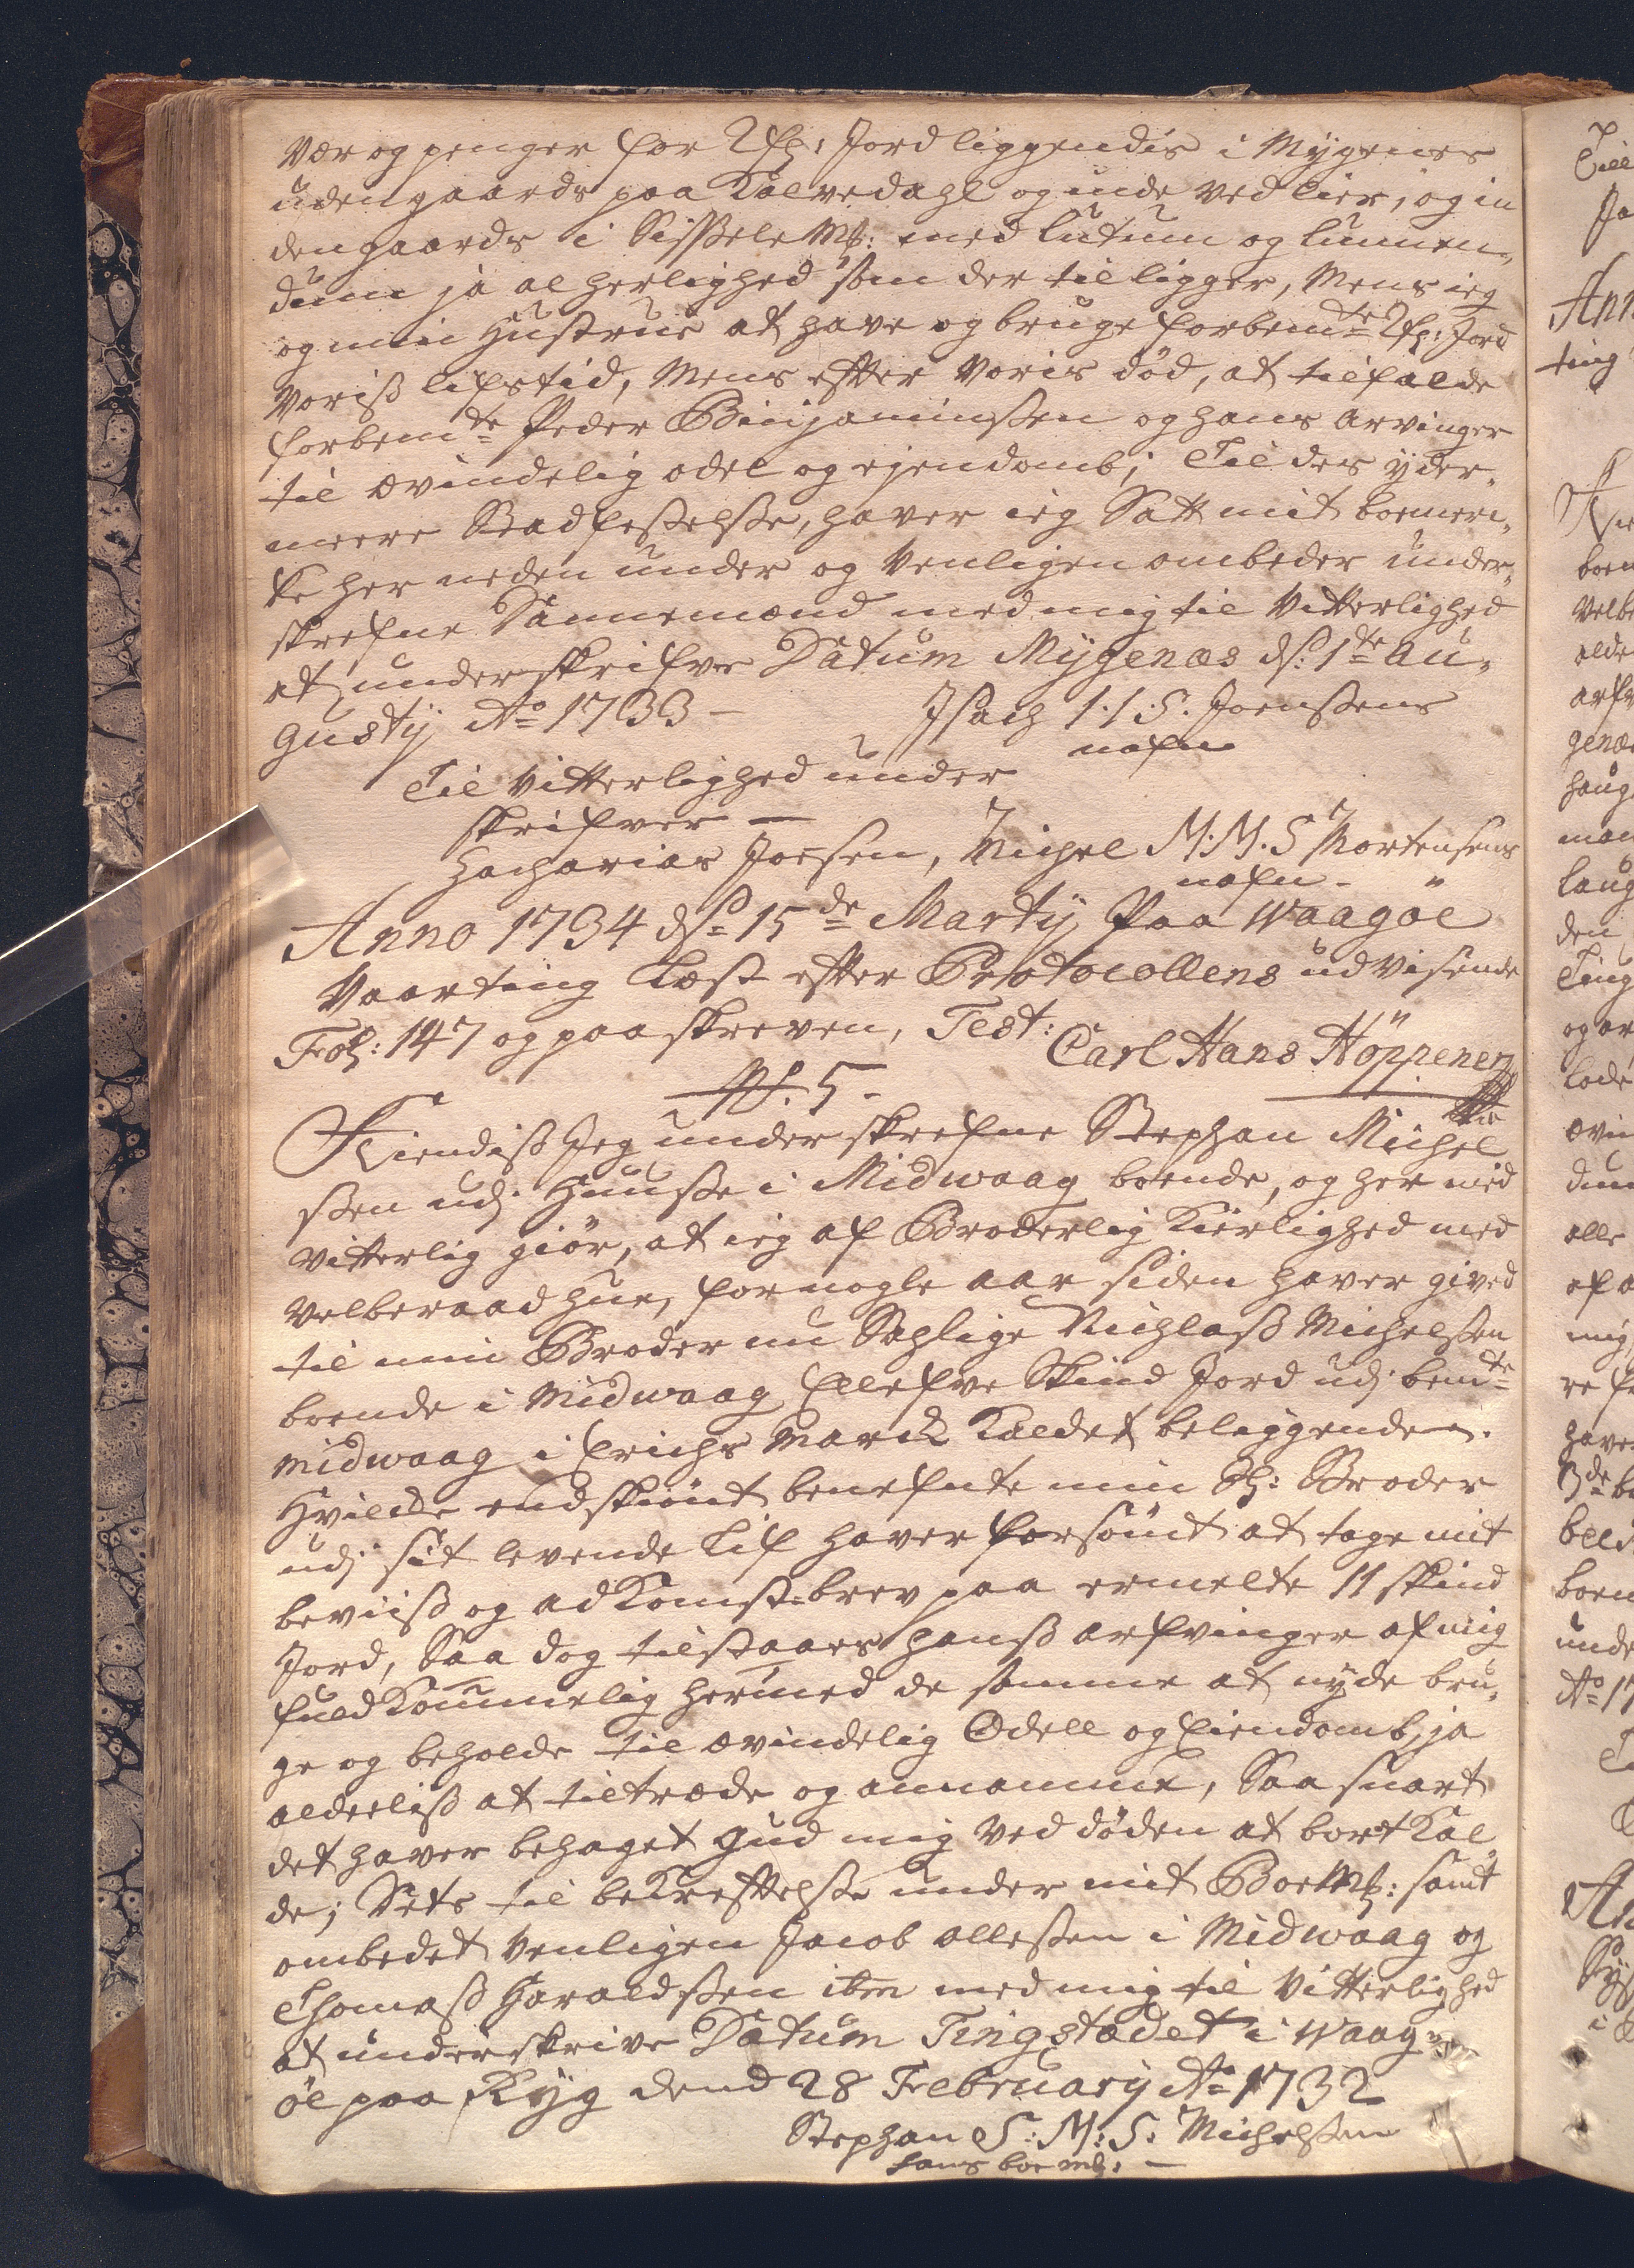 Vær og penger for 2 sk: Jord liggendis i Mygenes
udengaards paa Kalvedahl og inde ved lier, og in
dengaards i Sissele Mk: med lutum og lunnen„
dum ja al herlighed som der til ligger, Mens ieg
og min Hustrue at have og bruge forbemte 2 sk: Jord
Voriss lifstid, Mens efter Voris död, at tilfalde
forbemte Peder Binjaminssen og hans arvinger
til ævindelig odel og ejendomb; Til des yder„
meere Stadfestelsse, haver ieg Satt mit boemer„
ke her neden under og Venligen ombeder under„
skrefne Dannemænd med mig til Vitterlighed
at underskrifve Datum Mygenæs ds: 1te au„
gusty Ao 1733 – Isach I:I:S. Joenssens
nafn
Til Vitterlighed under
skrifver –
Zacharias Joesen, Michel M:M:S Mortensens
nafn –
Anno 1734 ds 15de Marty, Paa Waagöe
Vaarting Læst efter Protocollens udvisende
Fol: 147 og paaskreven, Test: Carl Hans Höppener
No. 5.
Kiendiss Jeg underskrefne Stephan Michel
ssen udj Huusse i Midwaag boende, og her med
vitterlig giör, at ieg af Broderlig Kierlighed med
velberaad hue, for nogle aar siden haver gived
til min Broder nu Sahlige Nichlass Michelssen
boende i Midwaag Ellefve Skind Jord udj bemte
Midwaag i Erichs Marck Kaldet beliggende.
Hvilcke endskiönt benefnte min Sl: Broder
udj sit levende Lif haver forsömt at tage mit
beviiss og adKomst-brev paa ermelte 11 skind
Jord, Saa dog tilstaaes hanss arfvinger af mig
fuldKommelig hermed de samme at nyde bru„
ge og beholde til ævindelig Odell og Eiendomb, ja
alderliss at tiltræde og annamme, Saa snart
det haver behaget Gud mig Ved döden at bortKal„
de; Dets til beKreftelsse under mit BoeMk: samt
ombedet Venligen Jacob ollessen i Midwaag og
Thomass Haraldssen ibm med mig til Vitterlighed
at underskrive Datum Tingstædet i Waag„
öe paa Ryg dend 28 February Ao 1732
Stephan S: M: S: Michelssen
hans boe mk: –